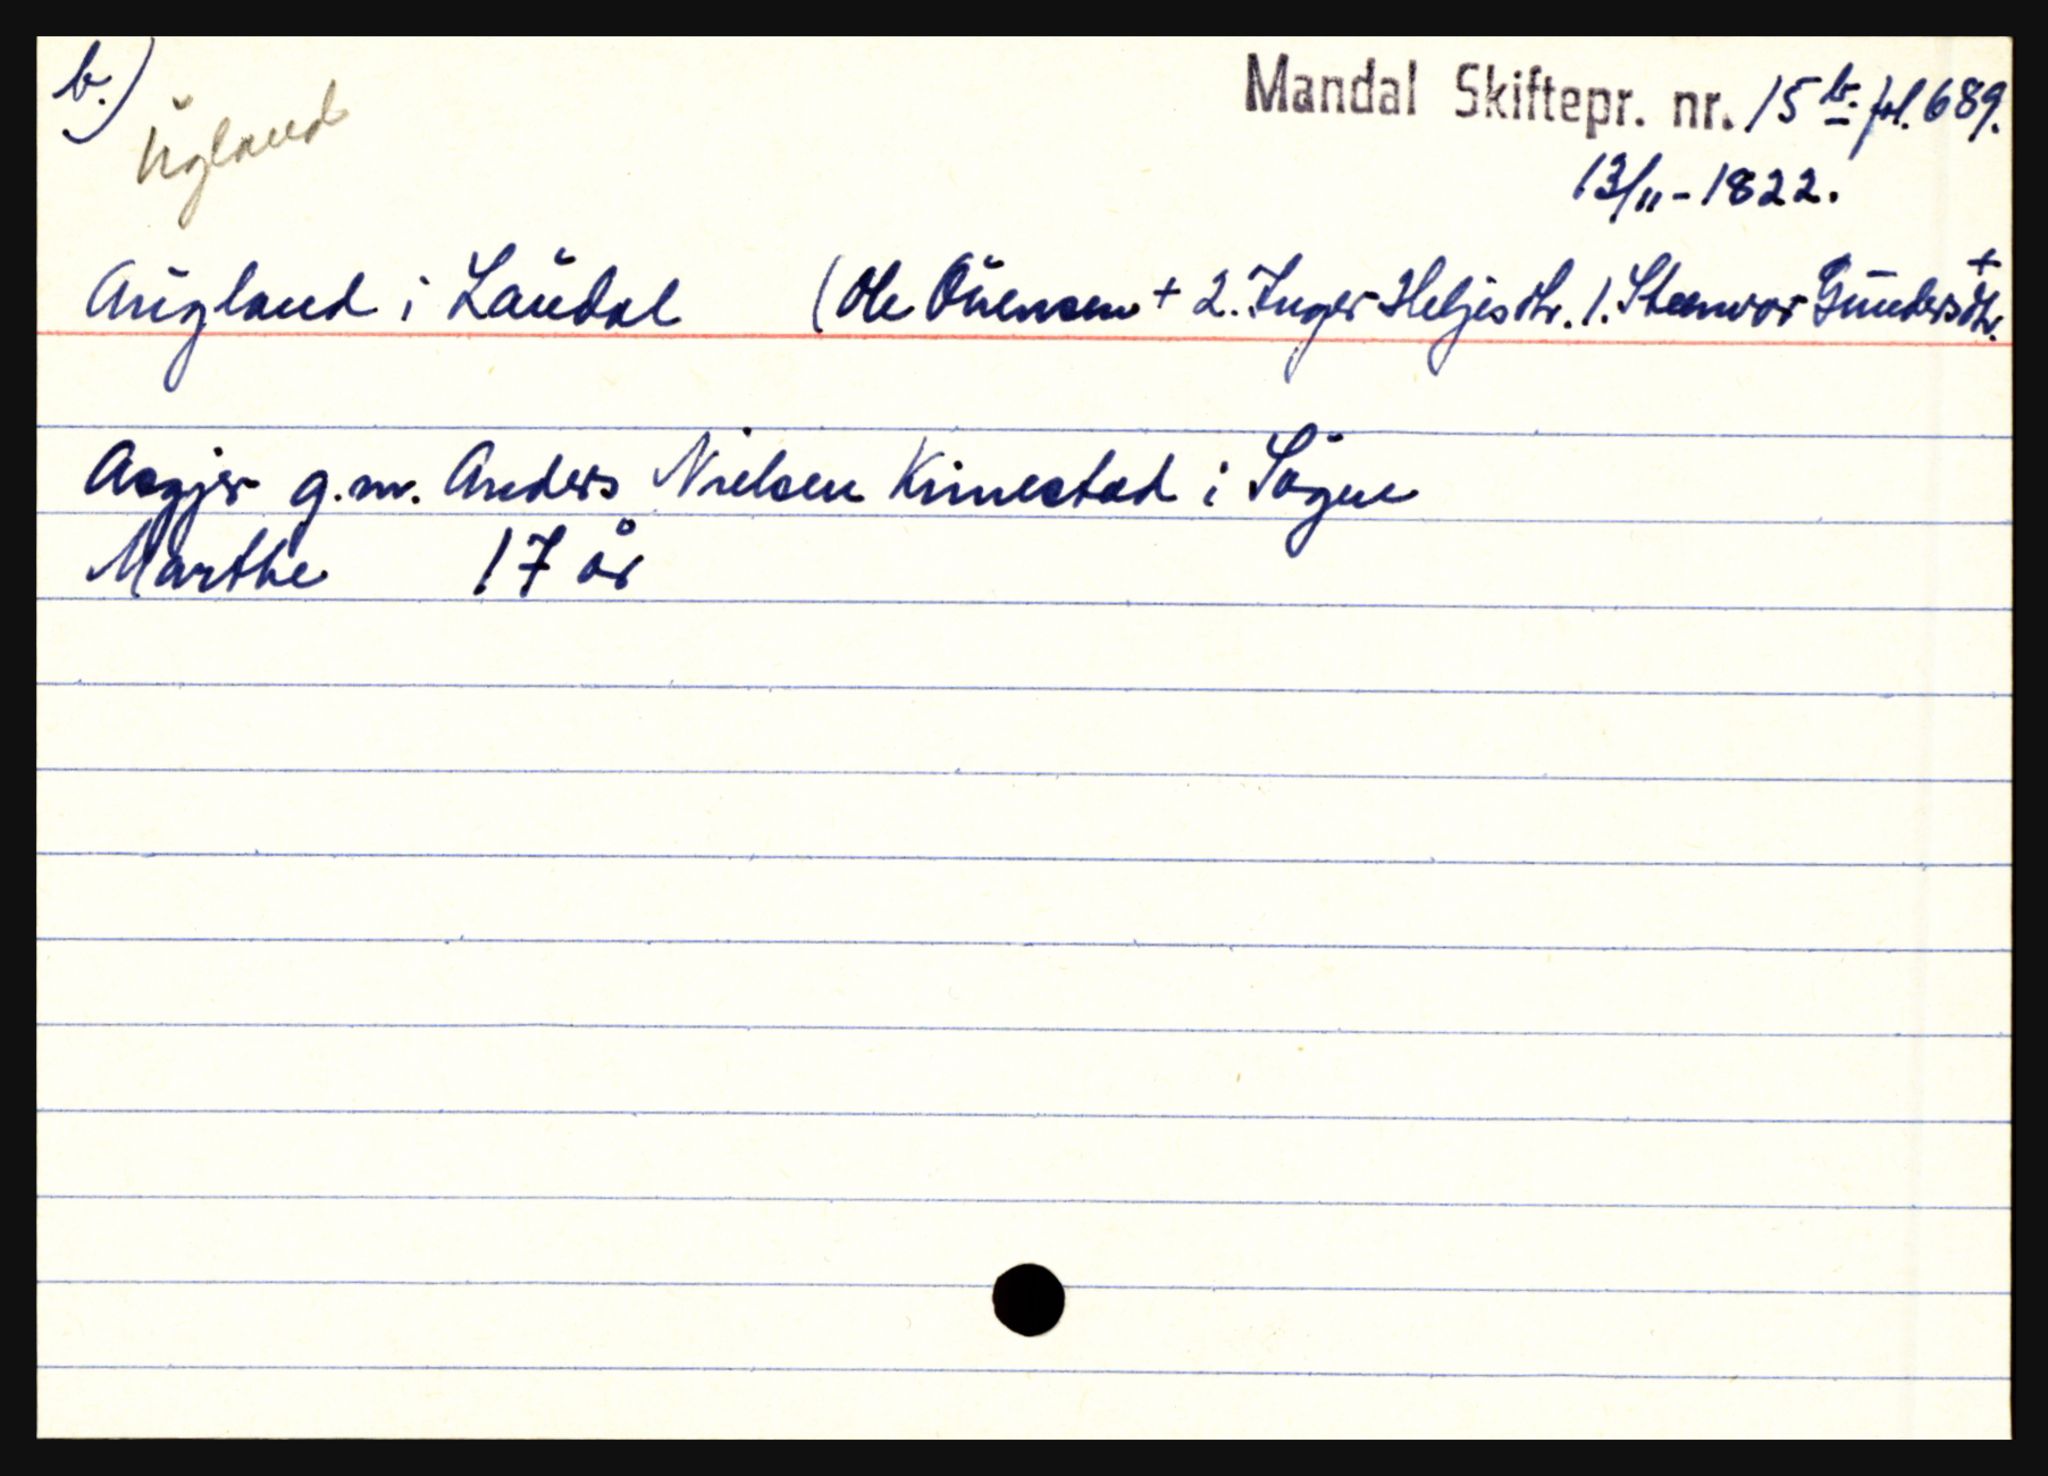 b.)
Ugland
Mandal Skiftepr. nr. 15 b. fol. 689.
13/11 - 1822.
Augland i Laudal (Ole Ouensen + 2. Inger Heljesdtr. 1. Steenvor Gundersdtr. +
Asgjer g.m. Anders Nielsen Kinestad i Søgne
Marthe 17 år